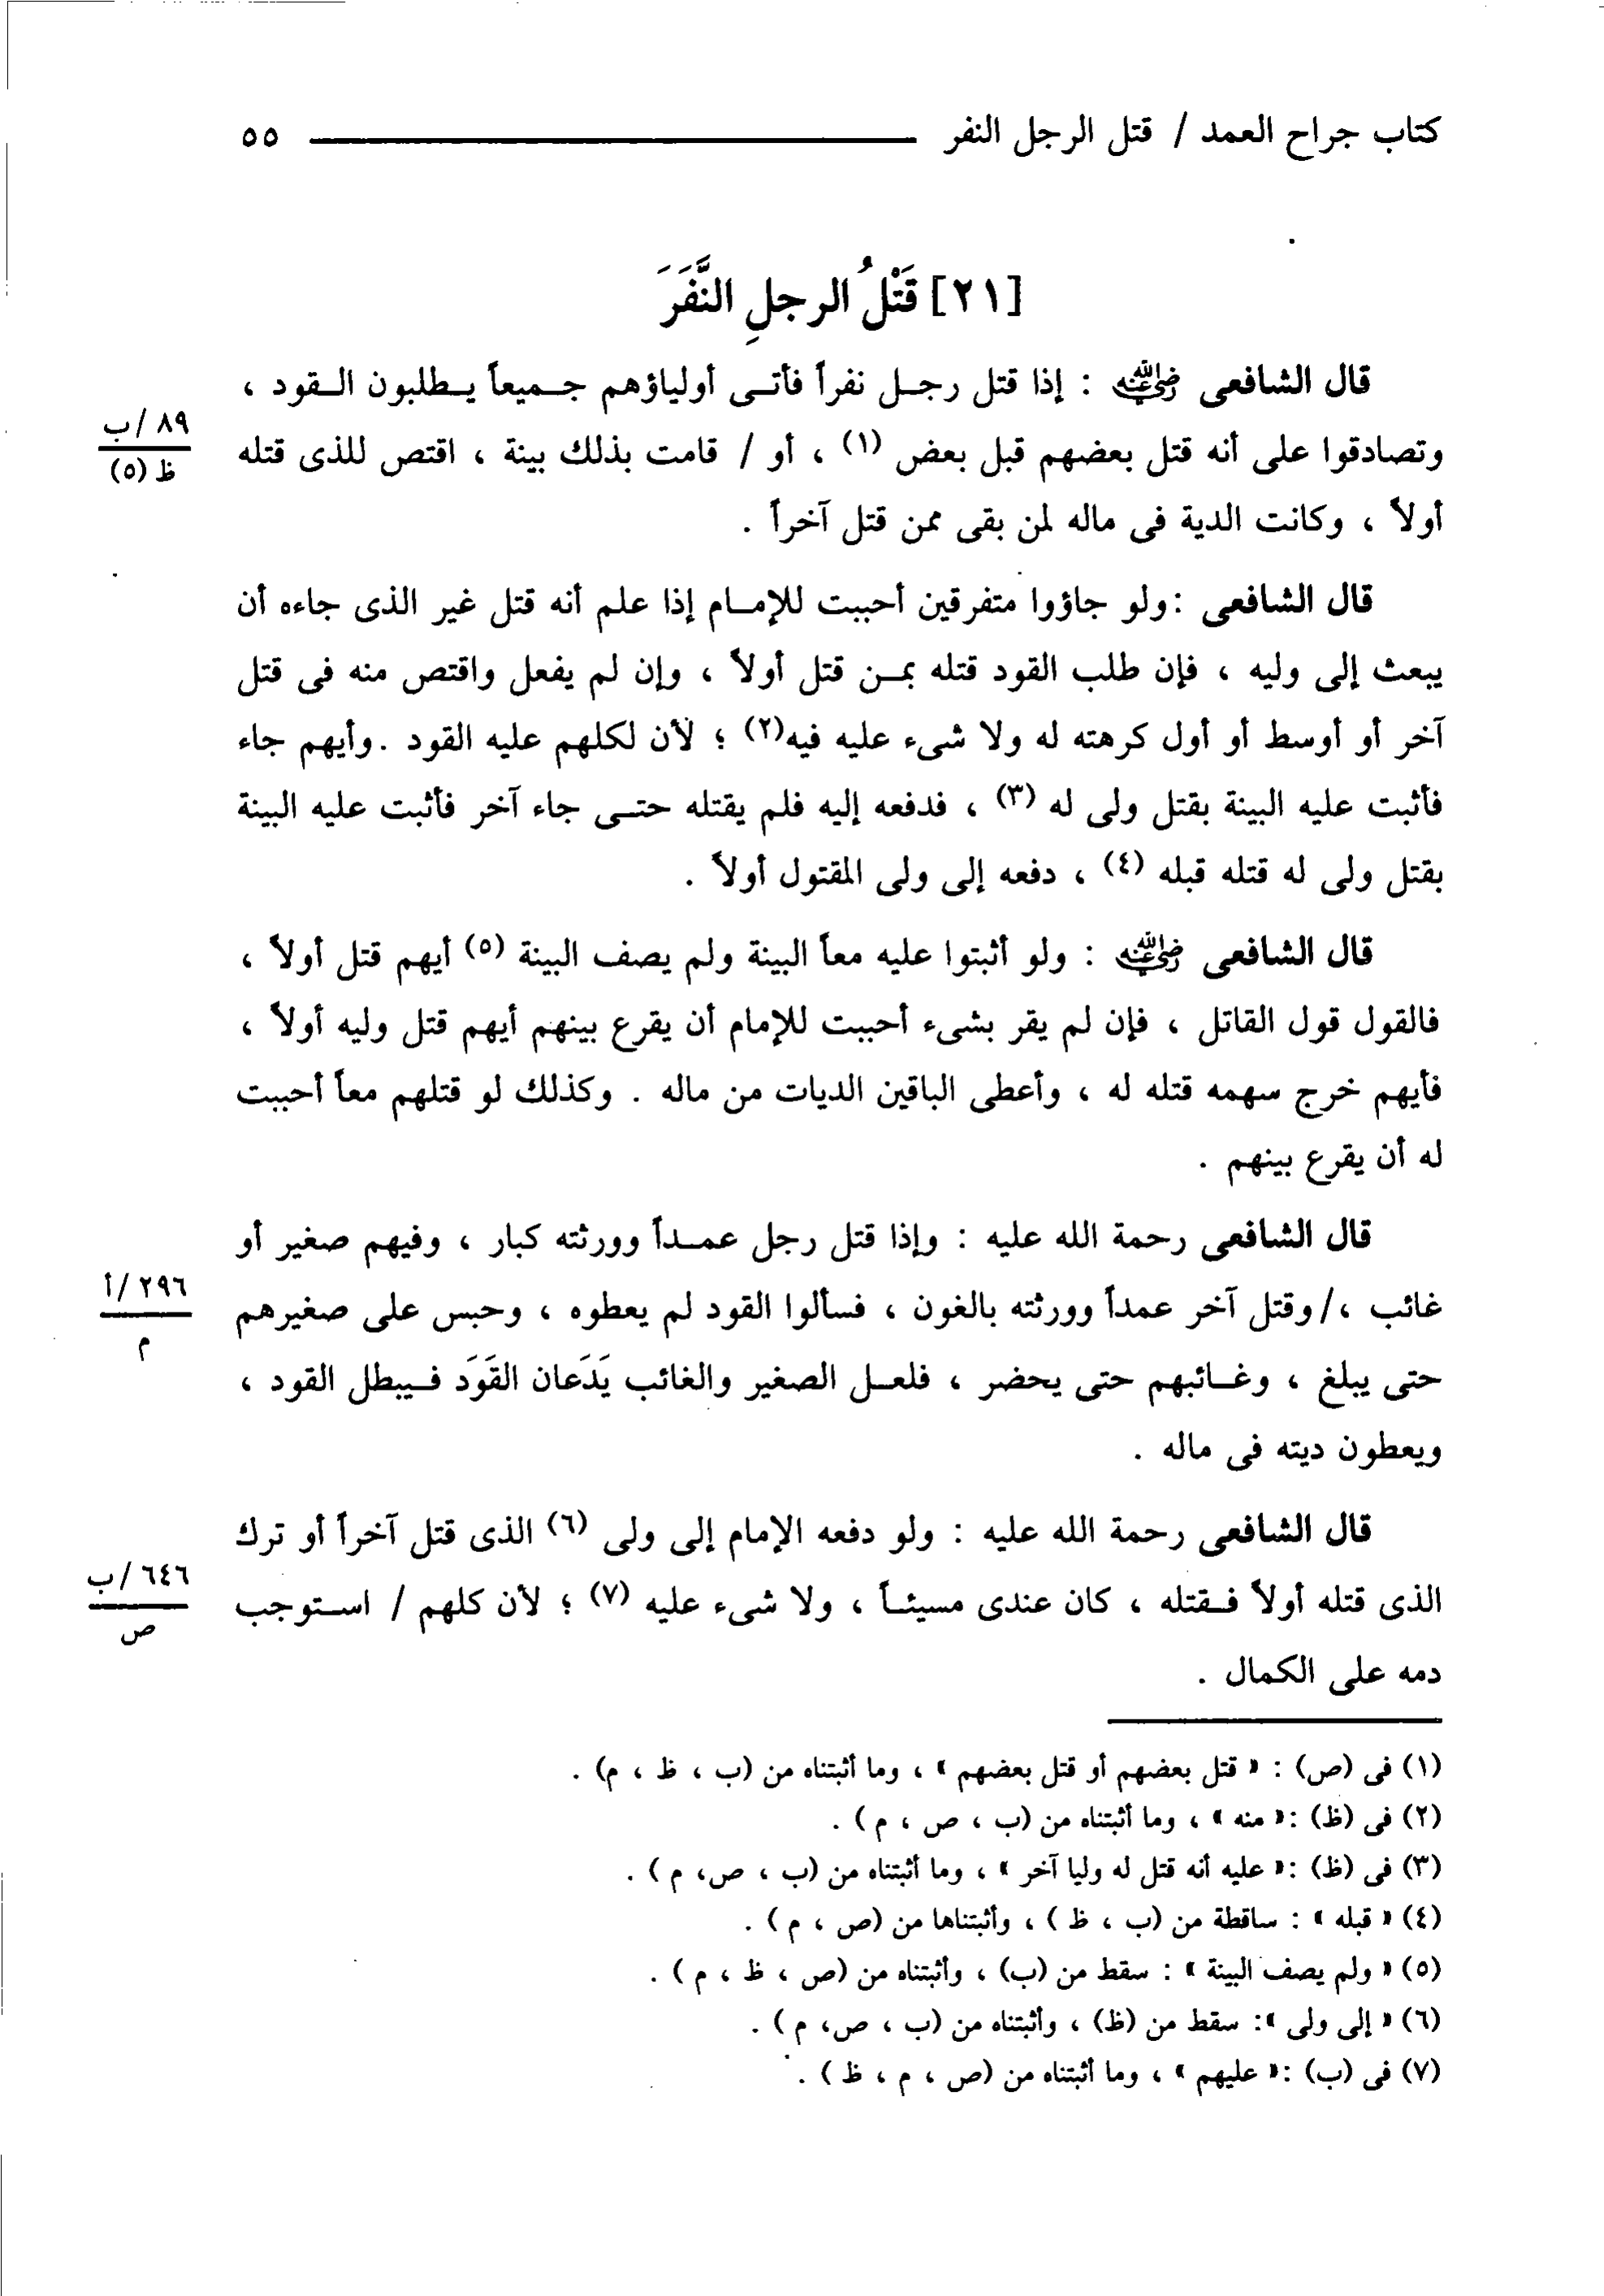 كتاب جراح العمد / قتل الرجل النفر ــــــــــــــــ ٥٥
[٢١] قَتْلُ الرجلِ النَّفَرَ
قال الشافعى رضي الله عنه : إذا قتل رجل نفراً فأتى أولياؤهم جميعاً يطلبون القود ،
وتصادقوا على أنه قتل بعضهم قبل بعض (١) ، أو / قامت بذلك بينة ، اقتص للذى قتله
٨٩ /ب
ظ (٥)
أولاً ، وكانت الدية فى ماله لمن بقى ممن قتل آخراً .
قال الشافعى : ولو جاؤوا متفرقين أحببت للإمام إذا علم أنه قتل غير الذى جاءه أن
يبعث إلى وليه ، فإن طلب القود قتله بمن قتل أولاً ، وإن لم يفعل واقتص منه فى قتل
آخر أو أوسط أو أول كرهته له ولا شىء عليه فيه(٢) ؛ لأن لكلهم عليه القود . وأيهم جاء
فأثبت عليه البينة بقتل ولى له (٣) ، فدفعه إليه فلم يقتله حتى جاء آخر فأثبت عليه البينة
بقتل ولى له قتله قبله (٤) ، دفعه إلى ولى المقتول أولاً .
قال الشافعى رضي الله عنه : ولو أثبتوا عليه معاً البينة ولم يصف البينة (٥) أيهم قتل أولاً ،
فالقول قول القاتل ، فإن لم يقر بشىء أحببت للإمام أن يقرع بينهم أيهم قتل وليه أولاً ،
فأيهم خرج سهمه قتله له ، وأعطى الباقين الديات من ماله . وكذلك لو قتلهم معاً أحببت
له أن يقرع بينهم .
قال الشافعى رحمة الله عليه : وإذا قتل رجل عمداً وورثته كبار ، وفيهم صغير أو
غائب ،/ وقتل آخر عمداً وورثته بالغون ، فسألوا القود لم يعطوه ، وحبس على صغيرهم
٢٩٦ /أ
م
حتى يبلغ ، وغائبهم حتى يحضر ، فلعل الصغير والغائب يَدَعان القَوَد فيبطل القود ،
ويعطون ديته فى ماله .
قال الشافعى رحمة الله عليه : ولو دفعه الإمام إلى ولى (٦) الذى قتل آخراً أو ترك
الذى قتله أولاً فقتله ، كان عندى مسيئاً ، ولا شىء عليه (٧) ؛ لأن كلهم / استوجب
٦٤٦ /ب
ص
دمه على الكمال .
(١) فى (ص) : « قتل بعضهم أو قتل بعضهم » ، وما أثبتناه من (ب ، ظ ، م) .
(٢) فى (ظ) : « منه » ، وما أثبتناه من (ب ، ص ، م ) .
(٣) فى (ظ) : « عليه أنه قتل له وليا آخر » ، وما أثبتناه من (ب ، ص، م ) .
(٤) « قبله » : ساقطة من (ب ، ظ ) ، وأثبتناها من (ص ، م ) .
(٥) « ولم يصف البينة » : سقط من (ب) ، وأثبتناه من (ص ، ظ ، م ) .
(٦) « إلى ولى »: سقط من (ظ) ، وأثبتناه من (ب ، ص، م ) .
(٧) فى (ب) : « عليهم » ، وما أثبتناه من (ص ، م ، ظ ) .